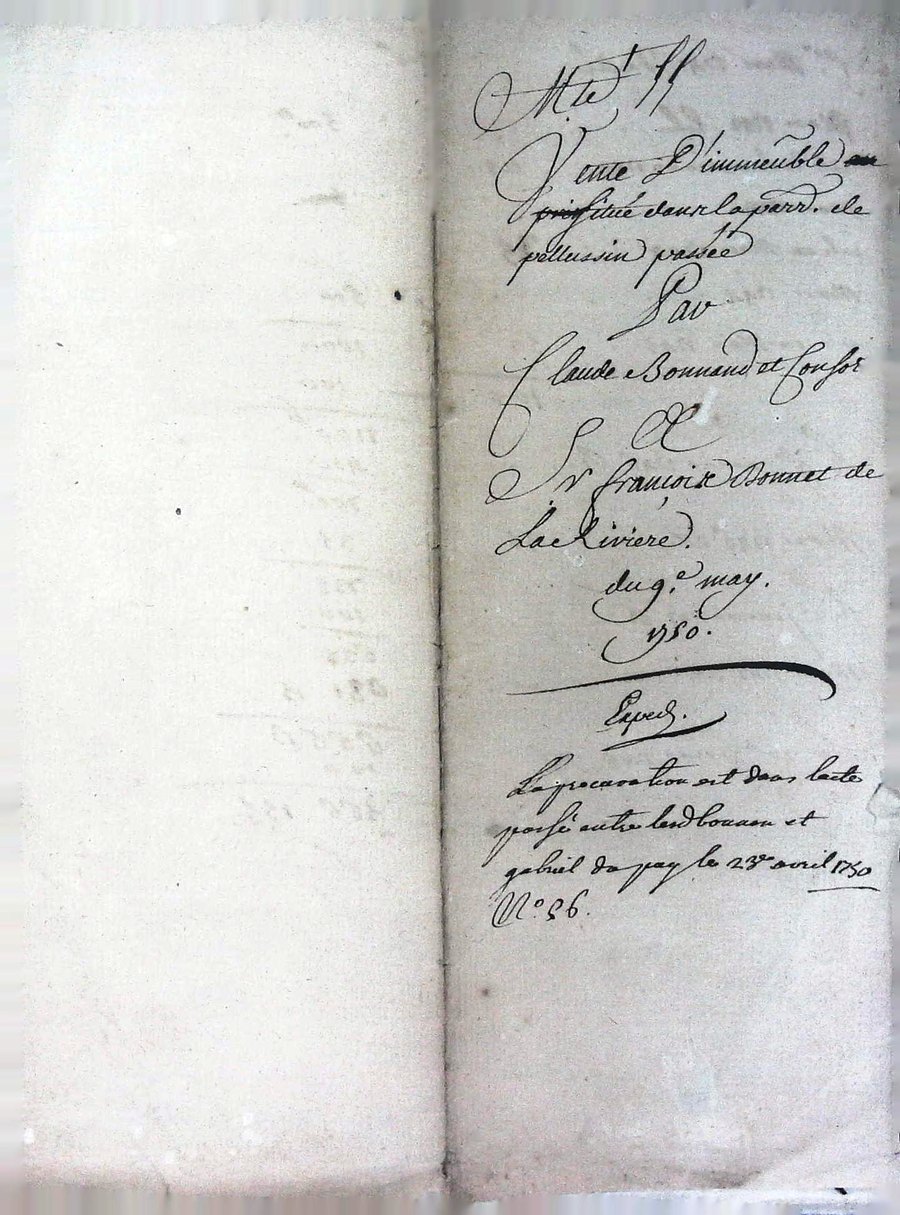 Vente D'immeuble au
prix situé dans la parr. de
pellussin passée
Par
Claude Bonnand et Consor
A
Sr françois Bonnet de
La Riviere.
du 9.e may.
1750.
Exped.
La procuration est dans lacte
passé entre led bonnan et
gabriel du pay le 23e avril 1750
N.o 56.